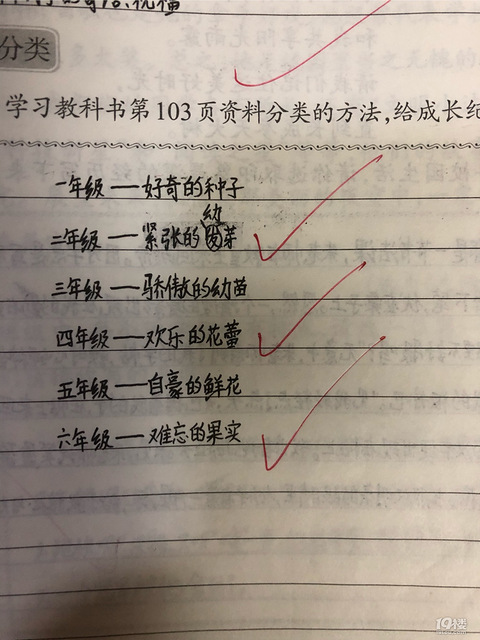 祝福
分类
学习教科书第103页资料分类的方法,给成长纪
一年级——好奇的种子
幼
二年级——紧张的芽
三年级——骄傲的幼苗
四年级——欢乐的花蕾
五年级——自豪的鲜花
六年级——难忘的果实
19楼